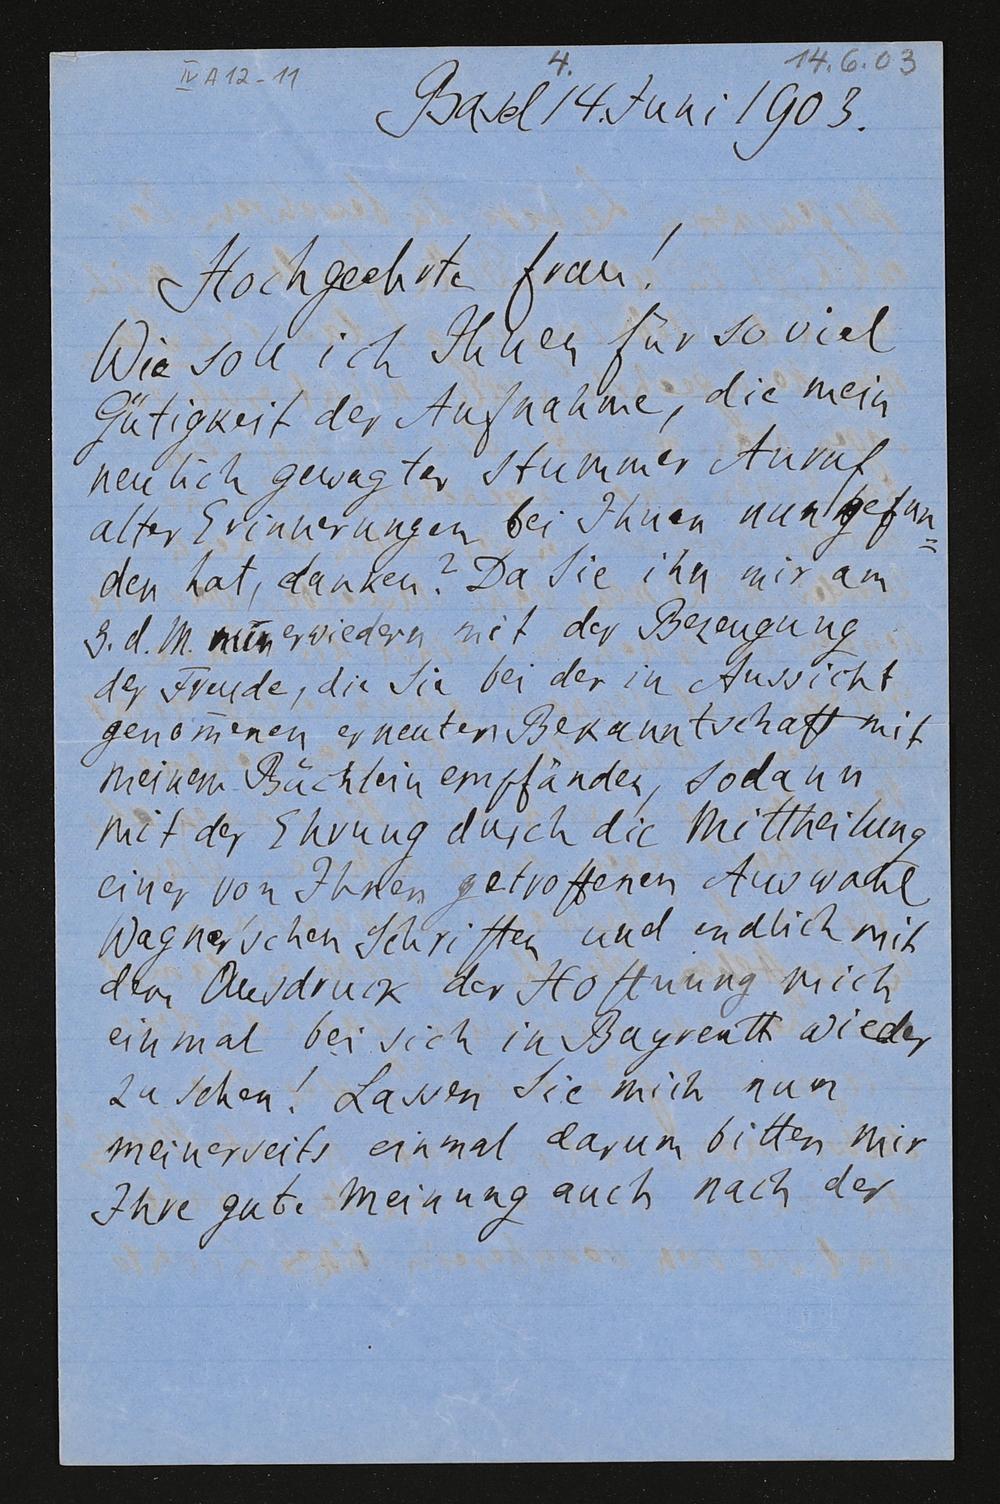 IV A 12 - 11
4.
14.6.03
Basel 14. Juni 1903.
Hochgeehrte Frau!
Wie soll ich Ihnen für so viel
Gütigkeit der Aufnahme, die mein
neulich gewagter stummer Anruf
alter Erinnerungen bei Ihnen nun gefun=
den hat, danken? Da Sie ihn mir am
3. d. M. erwiedern mit der Bezeugung
der Freude, die Sie bei der in Aussicht
genom̄enen erneuten Bekanntschaft mit
meinem Büchlein empfänden, sodann
mit der Ehrung durch die Mittheilung
einer von Ihnen getroffenen Auswahl
Wagner'schen Schriften und endlich mit
dem Ausdruck der Hoffnung mich
einmal bei sich in Bayreuth wieder
zu sehen! Lassen Sie mich nun
meinerseits einmal darum bitten mir
Ihre gute Meinung auch nach der